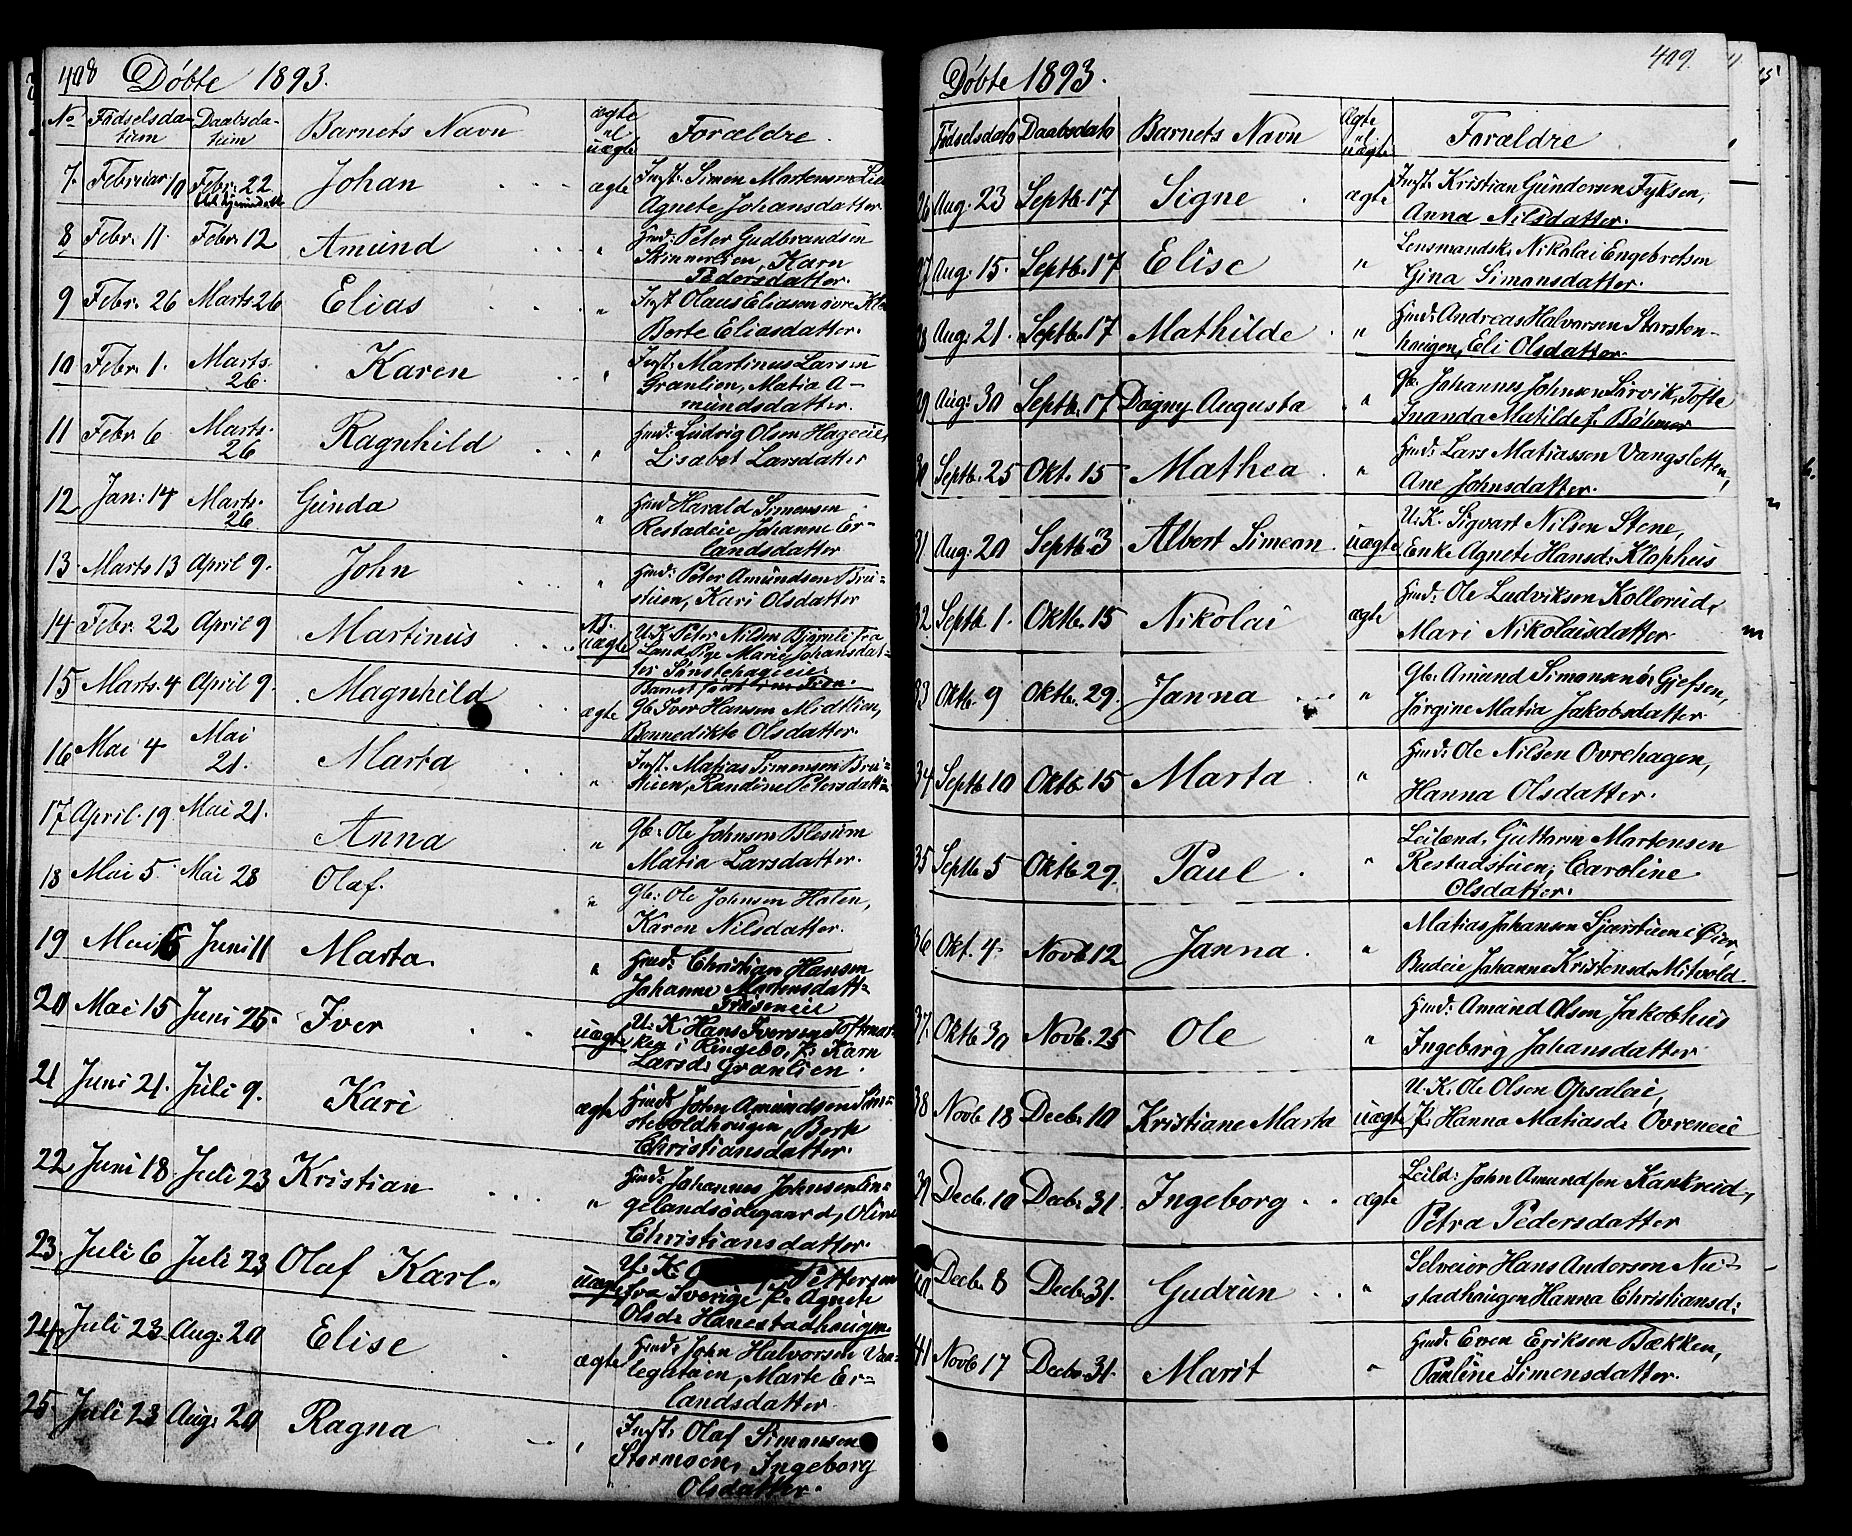 408 Døbte 1893.
No Fødselsdatum Daabsdatum Barnets Navn ægte el. uægte Forældre.
7. Februar 10 Febr. 22 Johan ægte Inst. Simon Martensen
Agnete Johansdatter
8 Febr. 11. Febr. 12 Amund " Hmd: Peter Gudbrandsen
Skinnerlien, Karn
Pedersdatter.
9 Febr. 26 Marts 26 Elias " Inst. Olaus Eliasen øvre
Berte Eliasdatter.
10 Febr. 1. Marts. 26. Karen " Inst. Martinus Larsen
Grønlien, Matia A-
mundsdatter.
11 Febr. 6 Marts. 26 Ragnhild " Hmd: Ludvig Olsen
Lisabet Larsdatter
12 Jan: 14 Marts. 26 Gunda " Hmd Harald Simensen
Restadeie Johanne Er-
landsdatter
13 Marts 13 April 9. John " Hmd: Peter Amundsen Brui-
stuen, Kari Olsdatter
14 Febr. 22 April 9 Martinus uægte U.K. Peter Nilsen fra
Land Pge Marie Johansdat-
ter Sønstehageeie
15 Marts. 4 April 9. Magnhild ægte
Gb. Iver Hansen Midtlien,
Bennedikte Olsdatter.
16 Mai 4 Mai 21. Marta " Inst. Matias Simensen Brui-
stuen, Randine Petersdatter
17 April. 19 Mai 21. Anna " Gb: Ole Johnsen Blesum
Matia Larsdatter.
18 Mai 5. Mai 28 Olaf. " Gb: Ole Johnsen Holen,
Karen Nilsdatter.
19 Mai 6 Juni 11 Marta. " Hmd: Christian Hansen
Johanne Martensdatt-
20 Mai 15 Juni 25. Iver uægte U. K Hans Iversen Toftemar-
ken i Ringebo, P. Karn
Larsd: Grønlien.
21 Juni 21. Juli 9. Kari ægte Hmd: John Amundsen Søn-
steboldhougen, Berte
Christiansdatter.
22 Juni 18 Juli 23 Kristian " Hmd: Johannes Johnsen Sin-
gelandsødegaard, Oline
Christiansdatter.
23. Juli 6 Juli 23 Olaf Karl. uægte U. K. Pettersen
fra Sverige P. Agnete
Olsd: Hanestadhougen
24. Juli 23 Aug: 20 Elise ægte Hmd: John Halvorsen Vaa-
legutuen, Marte Er-
landsdatter
25 Juli 23 Aug: 20 Ragna " Inst: Olaf Simonsen
Stormoen, Ingeborg
Olsdatter.
409.
Døbte 1893.
Fødselsdato Daabsdato Barnets Navn Ægte el uægte Forældre
26 Aug. 23 Septb. 17 Signe ægte Inst. Kristian Gundersen Fyksen,
Anna Nilsdatter.
27 Aug: 15. Septb. 17 Elise " Lensmandsk. Nikolai Engebretsen
Gina Simonsdatter.
28 Aug: 21. Septb. 17 Mathilde " Hmd: Andreas Halvorsen Storsten-
haugen, Eli Olsdatter.
29 Aug: 30 Septb. 17 Dagny Augusta " Gb. Johannes Johnsen Lørvik, Tofte
Inanda Matilde f. Bøhmer
30 Septb. 25 Okt. 15 Mathea " Hmd: Lars Matiassen Vangsletten,
Ane Johnsdatter.
31. Aug: 20 Septb. 3 Albert Simeon uægte U.K. Sigvart Nilsen Stene,
Enke Agnete Hansd: Klophus
32. Septb. 1. Oktb. 15 Nikolai ægte Hmd: Ole Ludviksen Kollerud,
Mari Nikolaisdatter.
33 Oktb. 9 Oktb. 29. Janna " Gb. Amund Simonsen ø: Gjefsen,
Jørgine Matia Jakobsdatter.
34 Septb 10 Oktb. 15 Marta " Hmd: Ole Nilsen Øvrehagen,
Hanna Olsdatter.
35 Septb. 5 Oktb. 29. Paul " Leilænd. Guttorm Martensen
Restadstuen, Caroline
Olsdatter.
36 Okt. 4. Novb. 12 Janna. " Matias Johansen Sjørstuen i Øier
Budeie Johanne Kristensd: Mitvold
37. Oktb. 30 Novb. 25 Ole " Hmd: Amund Olsen Jakobhus
Ingeborg Johansdatter
38 Novb. 18 Decbr. 10 Kristiane Marta uægte U. K. Ole Olsen Opsaleie,
P. Hanna Matiasd: Øvreneie
39 Decb. 10 Decb. 31. Ingeborg ægte Leild: John Amundsen Kankreid,
Petra Pedersdatter
40 Decb. 8 Decb. 31. Gudrun " Selveier Hans Anderson Nu-
stadhaugen Hanna Christiansd:
41 Novb 17 Decb. 31. Marit " Hmd: Even Eriksen Bækken,
Pauline Simensdatter.